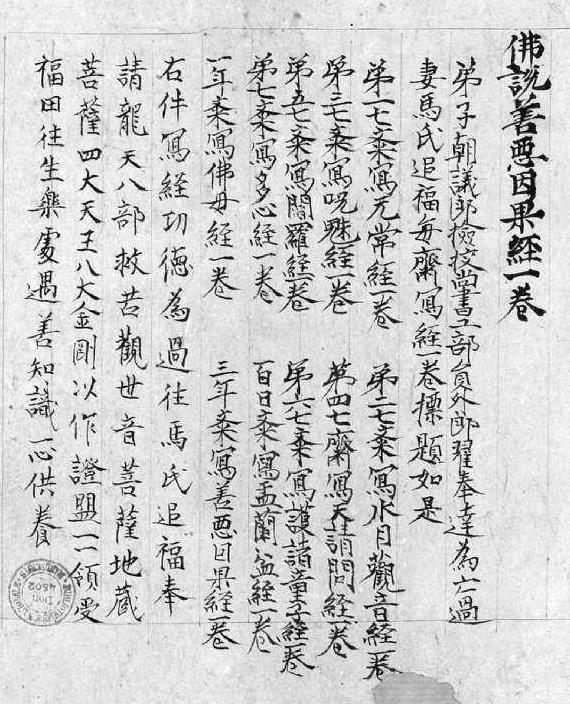 佛說善悪因果経一卷
弟子朝議郎檢校尚書工部員外郎翟奉達為亡過
妻馬氏追福每齋寫経一卷摽題如是
第一七斎寫无常経一卷 第二七斎寫水月觀音経一卷
第三七斎寫呪魅経一卷 第四七齋寫天請問経一卷
第五七斎寫閻羅経一卷 第六七斎寫護諸童子経一卷
第七斎寫多心経一卷 百日斎寫盂蘭盆経一卷
一年斎寫佛母経一卷 三年斎寫善悪因果経一卷
右件寫経功德為過往馬氏追福奉
請龍天八部救苦觀世音菩薩地藏
菩薩四大天王八大金剛以作證盟一一領受
福田往生樂處遇善知識一心供養
4502